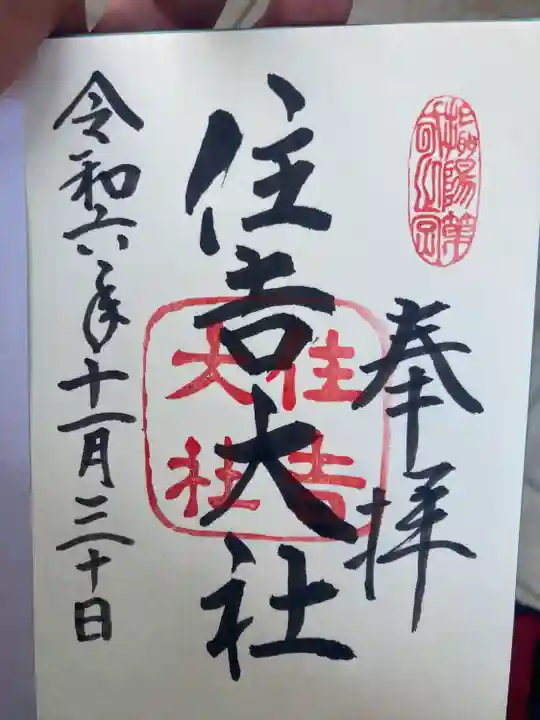 奉拝
住吉大社
住吉大社
令和六年十一月三十日